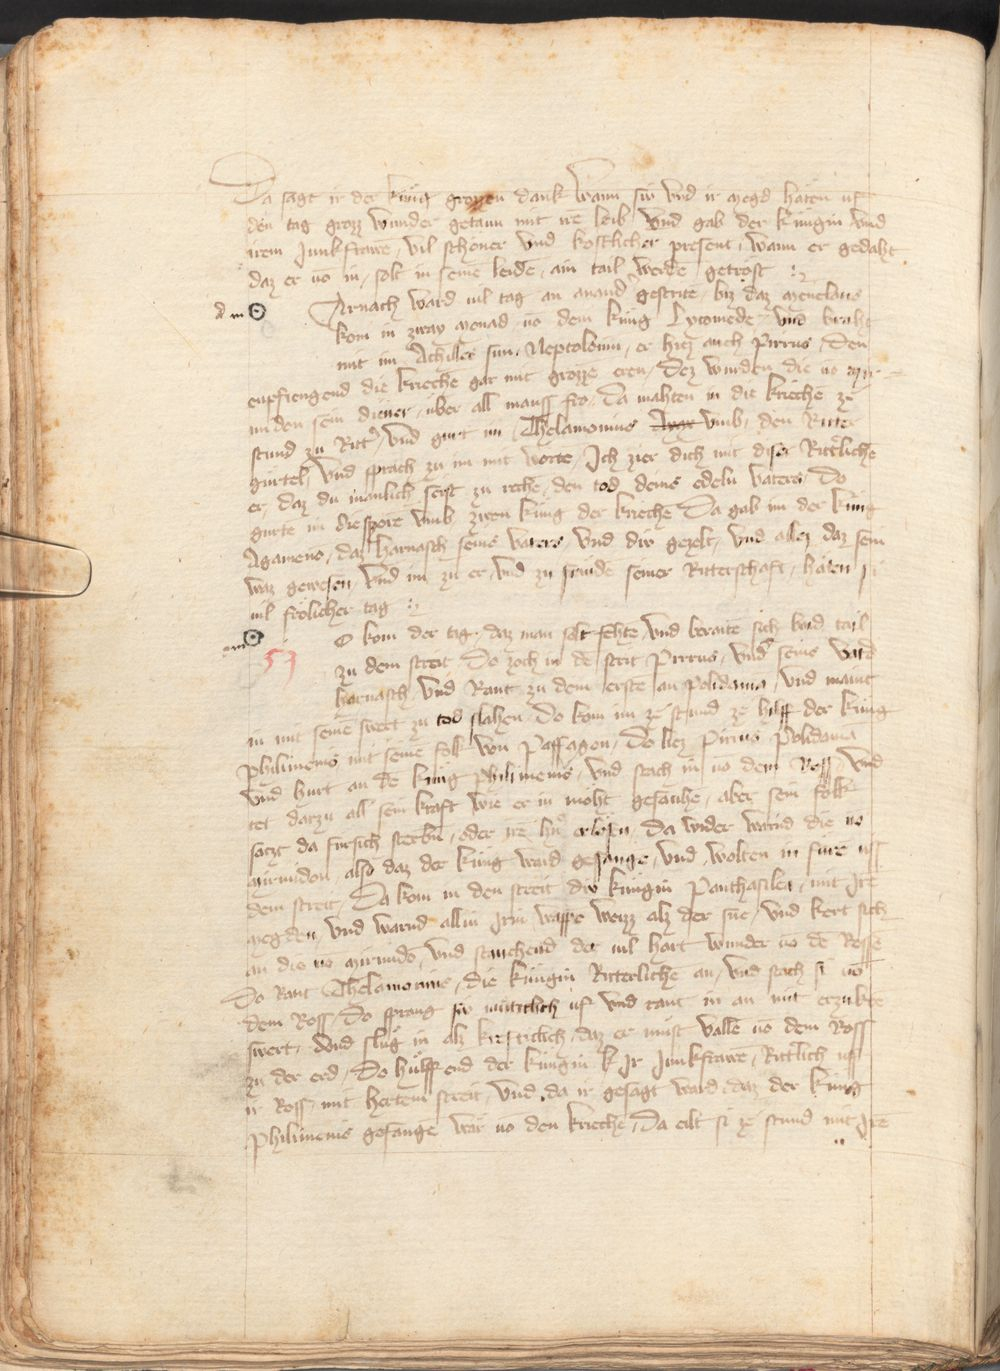 Da sagt ir der küng grozzen dank wann siv vnd ir megd haten uf
den tag grozz wunder getann mit ire leib vnd gab der küngin vnd
irem Junkfrawe, vil schoner vnd kostlicher present, wann er gedaht
daz er vō in, solt in seinē leidē, ain tail werdē getröst
Arnach ward vil tag an anand' gestritē, biz daz menelaus
kom in zway monad, vō dem küng Lycomede, vnd braht
mit im Achilles sun, Neptolomū, er hiez auch pirrus, Den
enpfiengend die kriechē gar mit grozze eren, Dez wurden die vō mir-
midon sein diener, über all mauss fro, Da mahten in die kriechē ze
stund zu Ritt', vnd gurt im Thelamonius vmb, den Ritter
gürtel, vnd sprach zu im mit worte, Ich zier dich mit diser Ritterlichē
er, daz du manlich seist zu rechē, den tod deins edeln vaters, Do
gurte im die sporē vmb zwen küng der kriechē Da gab im der küng
Agameno, daz harnasch seins vaters, vnd div gezelt, vnd allez daz sein
waz gewesen, vnd im zu er, vnd zu freude seiner Ritterschaft, haten si
vil frölicher tag
O kom der tag, daz man solt fehtē, vnd beraite sich baid tail
zu dem streit Do zoch in dē streit Pirrus, vnd' seins vat'
harnasch vnd Rant zu dem erste an polidama, vnd maint
in mit seinē swert zu tod slahen Do kom im ze stund ze hilff der küng
philimenis mit seinē folk von Paffagon, Do liez Pirrus Polidama
vnd hurt an dē küng philimenis, vnd stach in vō dem Ross, vnd
tet darzu all sein kraft wie er in möht gefauhē, aber sein folk
satzt da fürsich sterbn, oder irē hn' erlösn, Da wider warnd die vō
mirmidon, also daz der küng ward gefangē, vnd wolten in fürē uss
dem streit, Da kom in den streit div küngin Panthasilea, mit Irē
megden, vnd warnd all in Irm waffe weizz alz der snē, vnd kert sich
an die vō mirmido, vnd stauchend der vil hart wunder vō dē Rosse
Do Rant Thelamonius, die küngin Ritterlichē an, vnd stach si vō
dem Ross, Do sprang siv mütclich uf vnd rant in an mit erzuktē
swert, vnd slug in alz krefticlich, daz er must vallē vō dem Ross
zu der erd, Do hülffend der küngin Ir Junkfrawē, Rittlich uff
ir Ross, mit hertem streit, vnd da ir gesagt ward daz der küng
philimenis gefangē wär vō den kriechē, Da eilt si ze stund mit Irē